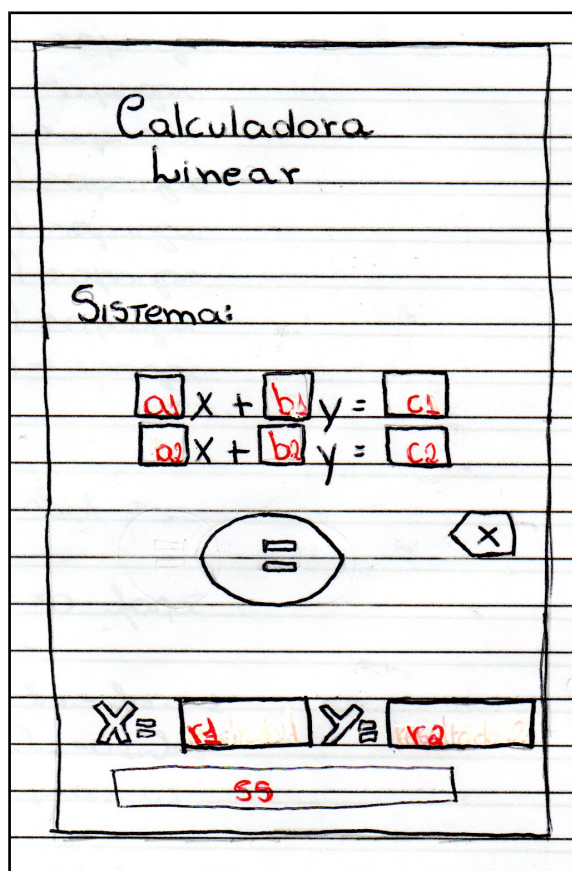 Calculadora
Linear
Sistema:
a1 x + b1 y = c1
a2 x + b2 y = c2
=
x
X= r1 Y= r2
ss